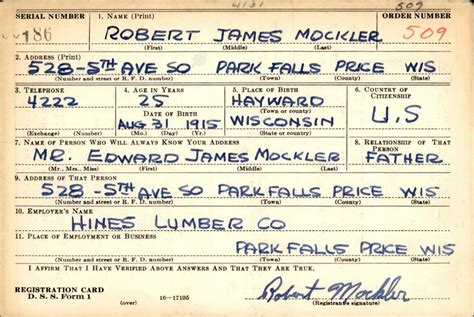 4131 509
SERIAL NUMBER 1. NAME (Print) ORDER NUMBER
186 ROBERT JAMES MOCKLER 509
(First) (Middle) (Last)
2. ADDRESS (Print)
528-5TH AVE SO PARK FALLS PRICE WIS
(Number and street or R. F. D. number) (Town) (County) (State)
3. TELEPHONE 4. AGE IN YEARS 5. PLACE OF BIRTH 6. COUNTRY OF CITIZENSHIP
4222 25 HAYWARD U.S
DATE OF BIRTH (Town or county)
AUG 31 1915 WISCONSIN
(Exchange) (Number) (Mo.) (Day) (Yr.) (State or country)
7. NAME OF PERSON WHO WILL ALWAYS KNOW YOUR ADDRESS 8. RELATIONSHIP OF THAT PERSON
MR. EDWARD JAMES MOCKLER FATHER
(Mr., Mrs., Miss) (First) (Middle) (Last)
9. ADDRESS OF THAT PERSON
528-5TH AVE SO PARK FALLS PRICE WIS
(Number and street or R. F. D. number) (Town) (County) (State)
10. EMPLOYER'S NAME
HINES LUMBER CO
11. PLACE OF EMPLOYMENT OR BUSINESS
PARK FALLS PRICE WIS
(Number and street or R. F. D. number) (Town) (County) (State)
I AFFIRM THAT I HAVE VERIFIED ABOVE ANSWERS AND THAT THEY ARE TRUE.
REGISTRATION CARD
D. S. S. Form 1 (over) 16-17105 Robert Mockler
(Registrant's signature)